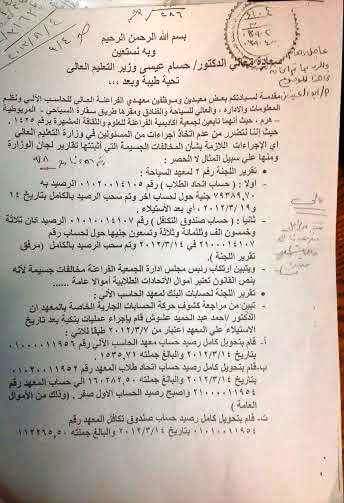 بسم الله الرحمن الرحيم
وبه نستعين
سعادة معالي الدكتور/ حسام عيسى وزير التعليم العالى
تحية طيبة وبعد ...
مقدمة لسيادتكم بعض معيدين وموظفين معهدي الفراعنة العالي للحاسب الآلي ونظم
المعلومات والادارة , والعالي للسياحة والفنادق ومقرها طريق سقارة السياحي - المريوطية
- هرم , حيث انهما تابعين لجمعية اكاديمية الفراعنة للعلوم والثقافة المشهرة برقم ١٤٢٥ .
حيث اننا نتضرر من عدم اتخاذ اجراءات من المسئولين في وزارة التعليم العالي
اي الإجراءات اللازمة بشأن المخالفات الجسيمة التي أثبتتها تقارير لجان الوزارة
ومنها على سبيل المثال لا الحصر :
• تقرير اللجنة رقم ٢ لمعهد السياحة :
- اولا : حساب اتحاد الطلاب ) رقم ٠١٠٢٠٠١٤١٠٥ الرصيد به
٧٩٣٨٩,٧٠ جنيها حول لحساب اخر وتم سحب الرصيد بالكامل ١٤
و٢٠١٢/٣/١٩ ,اي بعد الاستيلاء .
- ثانيا : حساب صندوق التكافل ) رقم ٠١٠١٠٠١٤١٠٧ الرصيد اثنان ثلاثة
وخمسون الف وثلثمائة وثلاثة وتسعون جنيها حول لحساب رقم
٢١٠٠٠١٤١٠٧ في ٢٠١٢/٣/١٤ وتم سحب الرصيد بالكامل (مرفق
تقرير اللجنة ) .
- ويتبين ارتكاب رئيس مجلس ادارة الجمعية الفراعنة مخالفات جسيمة لأنه
بنص القانون تعتبر اموال الاتحادات الطلابية أموالا عامة .....
• تقرير اللجنة لحسابات البنك لمعهد الحاسب الآلي :
- تبين من مراجعة كشوف حركة الحسابات الجارية الخاصة بالمعهد ان
الدكتور /احمد عبد الحميد علوش قام بإجراء عمليات بنكية بعد تاريخ
الاستيلاء على المعهد اعتبار من ٢٠١٢/٣/٧ طبقا للاتي :
أ- قام بتحويل كامل رصيد حساب معهد الحاسب الآلي رقم ٠١٠٠٠٠١١٩٥٦
بتاريخ ٢٠١٢/٣/١٤ والبالغ جملته ١٥٣٥,٧١ .
ب- قام بتحويل كامل رصيد حساب اتحاد طلاب المعهد رقم ٠١٠٢٠٠١١٩٥٢
بتاريخ ٢٠١٢/٣/١٤ والبالغ جملته ١٦٠٢٨٢,٥٠ الي حساب المعهد رقم
٢١٠٠٠٠١١٩٥٧ واصبح رصيد الحساب الاول صفر , (وذلك من الأموال
العامة )
ت- قام بتحويل كامل رصيد حساب صندوق تكافل المعهد رقم
٠١٠١٠٠١١٩٥٤ بتاريخ ٢٠١٢/٣/١٤ والبالغ جملته ١١٢٢٦٥,٥٠